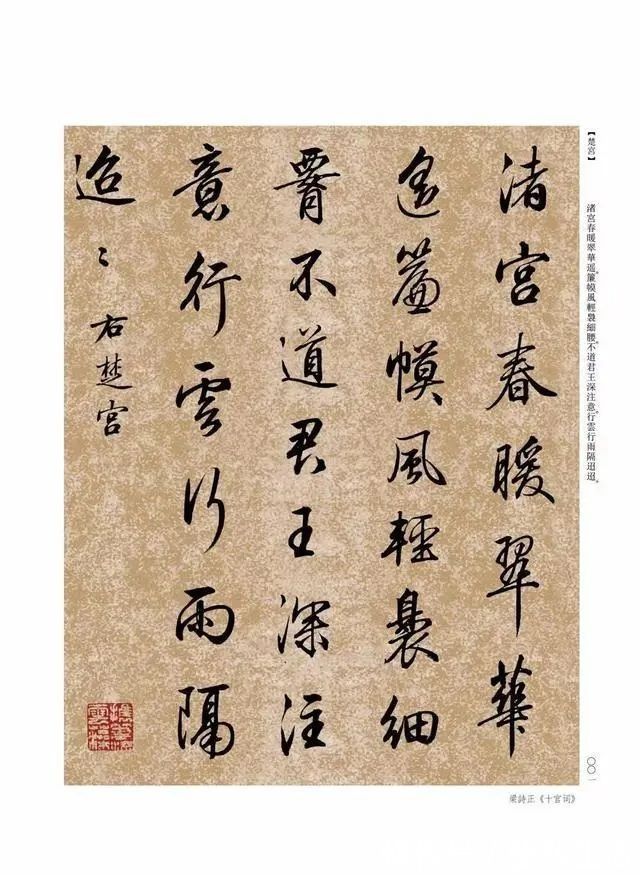 渚宮春暖翠華
遥簾幙風輕裊細
腰不道君王深注
意行雲行雨隔
迢〻右楚宮
【楚宮】
渚宮春暖翠華遥。簾幙風輕裊細腰。不道君王深注意。行雲行雨隔迢迢。
〇〇一
梁詩正《十宮词》